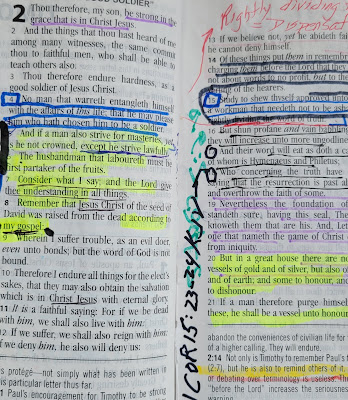 SOLDIER"
2 Thou therefore, my son, be strong in the
grace that is in Christ Jesus.
2 And the things that thou hast heard of me
among many witnesses, the same commit
thou to faithful men, who shall be able to
teach others also.
3 Thou therefore endure hardness, as a
good soldier of Jesus Christ.
4 No man that warreth entangleth himself
with the affairs of this life; that he may please
him who hath chosen him to be a soldier.
5 And if a man also strive for masteries, yet
is he not crowned, except he strive lawfully.
6 The husbandman that laboureth must be
first partaker of the fruits.
7 Consider what I say; and the Lord give
thee understanding in all things.
8 Remember that Jesus Christ of the seed of
David was raised from the dead according to
my gospel:
9 Wherein I suffer trouble, as an evil doer,
even unto bonds; but the word of God is not
bound.
10 Therefore I endure all things for the elect's
sakes, that they may also obtain the salvation
which is in Christ Jesus with eternal glory.
11 It is a faithful saying: For if we be dead
with him, we shall also live with him:
12 If we suffer, we shall also reign with him:
if we deny him, he also will deny us:
protégé—not simply what has been written in
this particular letter thus far.
Paul's encouragement for Timothy to be strong
1 COR 15:23-24 KJV
Rightly dividing
13 If we believe not, yet he abideth
he cannot deny himself.
14 Of these things put them in
charging them before the Lord that they
not about words to no profit, but to the
of the hearers.
15 Study to shew thyself approved unto
a workman that needeth not to be
dividing the word of truth.
16 But shun profane and vain babblings
they will increase unto more ungodliness
17 And their word will eat as doth a
of whom is Hymenaeus and Philetus;
18 Who concerning the truth have
saying that the resurrection is past
and overthrow the faith of some.
19 Nevertheless the foundation of
standeth sure, having this seal, The
knoweth them that are his. And, Let
one that nameth the name of Christ
from iniquity.
20 But in a great house there are not
vessels of gold and of silver, but also of
and of earth; and some to honour, and
to dishonour.
21 If a man therefore purge himself
these, he shall be a vessel unto honour
abandon the conveniences of civilian life for
of a higher calling. They will endure
2:14 Not only is Timothy to remember Paul's
(2:7), but he is also to remind others of it.
or debating over terminology is useless. The
"before the Lord" increases the seriousness
warning.